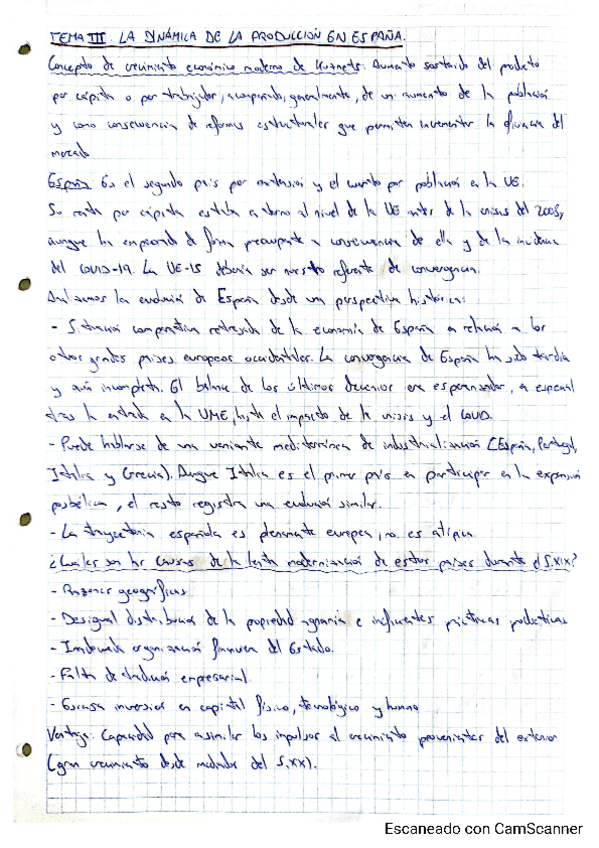 TEMA III. LA DINÁMICA DE LA PRODUCCION EN ESPAÑA.
Concepto de crecimiento económico moderno de Kuznets: Aumento sostenido del producto
por cápita o por trabajador, acompañado, generalmente, de un aumento de la población
y como consecuencia de reformas estructurales que permiten incrementar la eficiencia del
mercado
España Es el segundo país por extensión y el cuarto por población en la UE.
Su renta por cápita estaba en torno al nivel de la UE antes de la crisis del 2008,
aunque ha empeorado de forma preocupante a consecuencia de ella y de la incidencia
del COVID-19. La UE-15 debería ser nuestro referente de convergencia.
Analizamos la evolución de España desde una perspectiva histórica:
- Situación comparativa retrasada de la economía de España en relación a los
otros grandes países europeos occidentales. La convergencia de España ha sido tardía
y aún incompleta. El balance de los últimos decenios era esperanzador, en especial
tras la entrada en la UME, hasta el impacto de la crisis y el COVID.
- Puede hablarse de una variante mediterránea de industrialización (España, Portugal,
Italia y Grecia). Aunque Italia es el primer país en participar en la expansión
postbélica, el resto registra una evolución similar.
- La trayectoria española es plenamente europea, no es atípica.
¿Cuáles son las causas de la lenta modernización de estos países durante el S.XIX?
- Razones geográficas
- Desigual distribución de la propiedad agraria e ineficientes prácticas productivas
- Inadecuada organización financiera del Estado.
- Falta de tradición empresarial.
- Escasa inversión en capital físico, tecnológico y humano
Ventaja: Capacidad para asimilar los impulsos al crecimiento provenientes del exterior
(gran crecimiento desde mediados del S.XX).
Escaneado con CamScanner